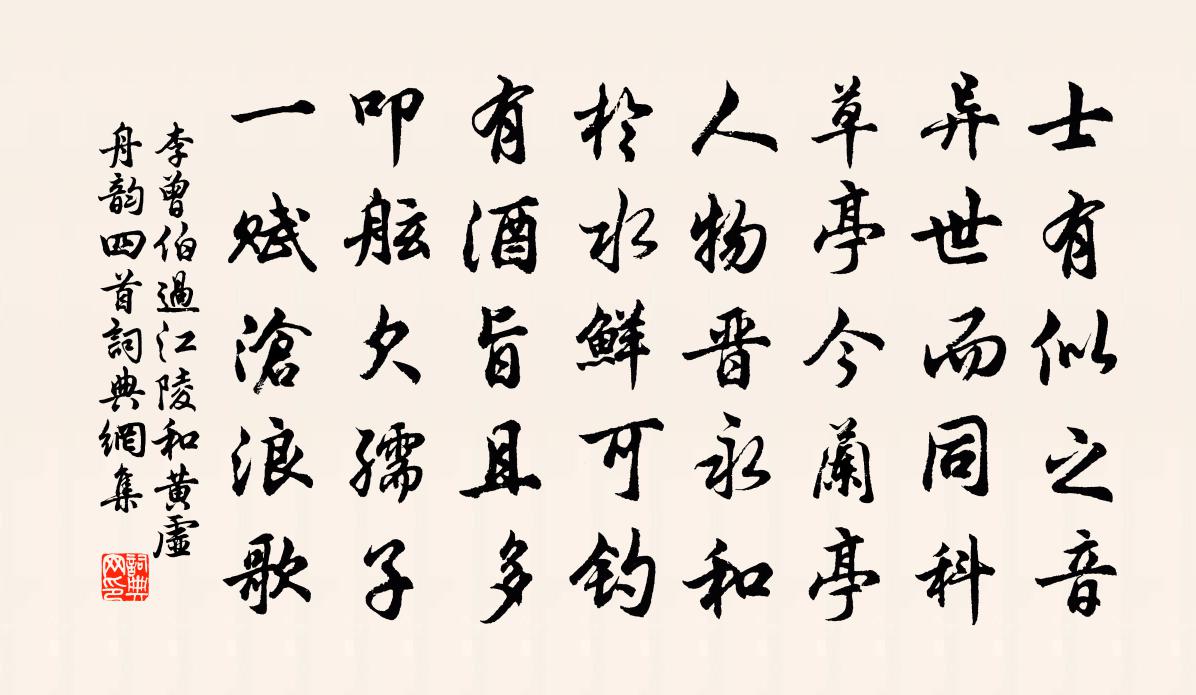 士有似之音
异世而同科
草亭今蘭亭
人物晋永和
於水鮮可钓
有酒旨且多
叩舷欠孺子
一赋滄浪歌
李曾伯過江陵和黄虛
舟韵四首詞典網集
詞典
网印